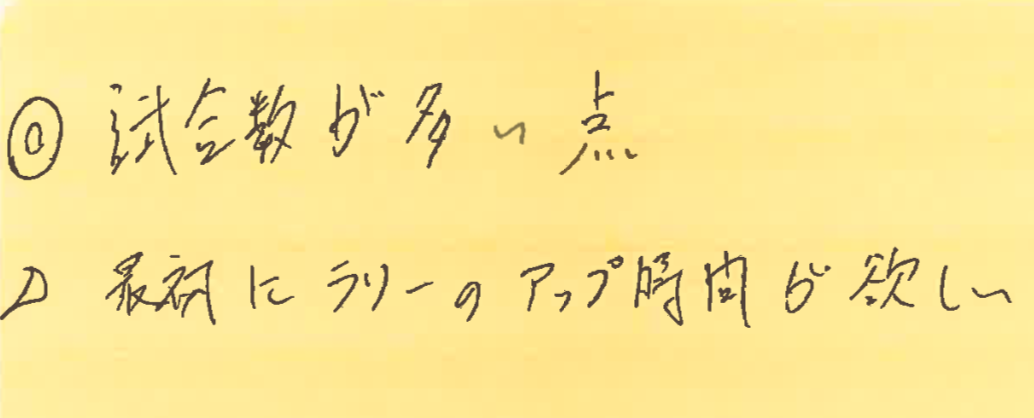 ◎ 試合数が多い点
△ 最初にラリーのアップ時間が欲しい